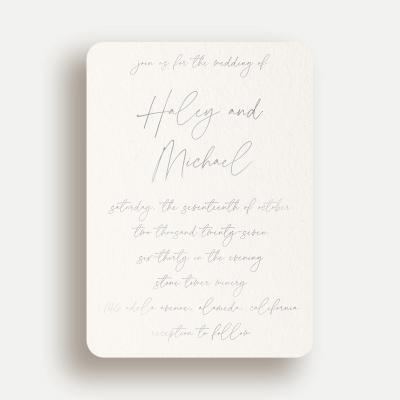 join us for the wedding of
Haley and
Michael
saturday, the seventeenth of october
two thousand twenty-seven
six thirty in the evening
stone tower winery
adela avenue, alameda, california
reception to follow